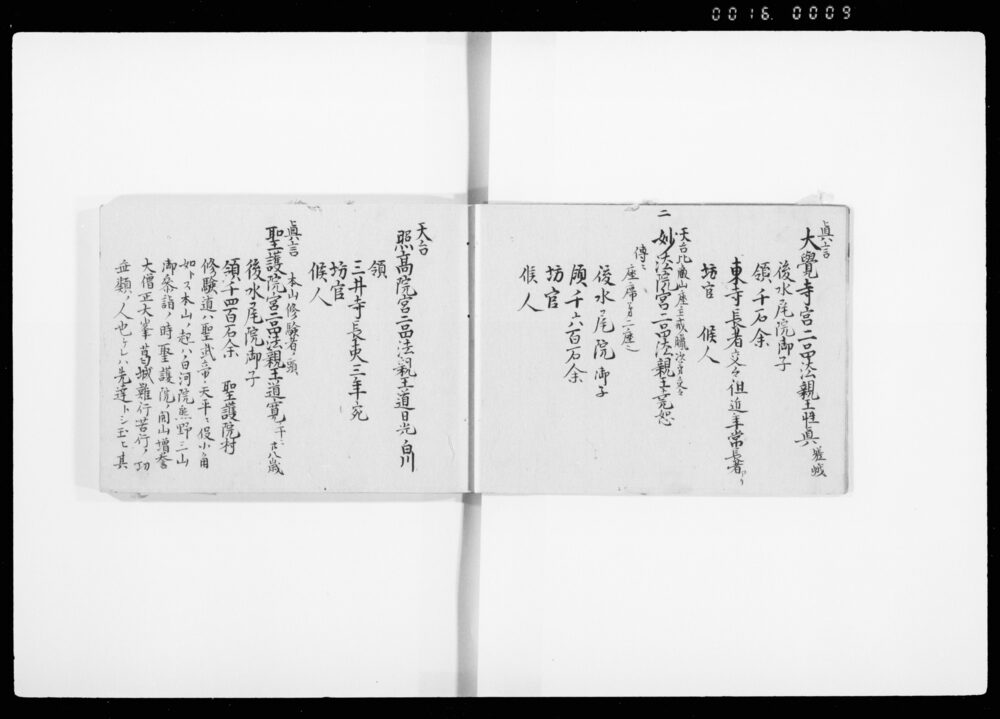 0016. 0009
真言
大覺寺宮二品法親王性真 嵯峨
後水尾院御子
領千石余
東寺長者交々 但近年常長者
坊官 候人
二
天台比叡山座主戒臈次第交々
妙法院宮二品法親王堯恕
座席
後水尾院御子
領千六百石余
坊官
候人
天台
照高院宮二品法親王道晃 白川
領
三井寺長吏三年宛
坊官
候人
真言 本山修験者ノ頭
聖護院宮二品法親王道寛 廿八歳
後水尾院御子
領千四百石余 聖護院村
修験道ハ聖武帝ノ天平ニ役小角
如トス本山ノ起ハ白河院熊野三山
御参詣ノ時聖護院ノ開山増誉
大僧正大峯葛城難行苦行ノ功
無類ノ人也ケレハ先達トシ玉ヒ其